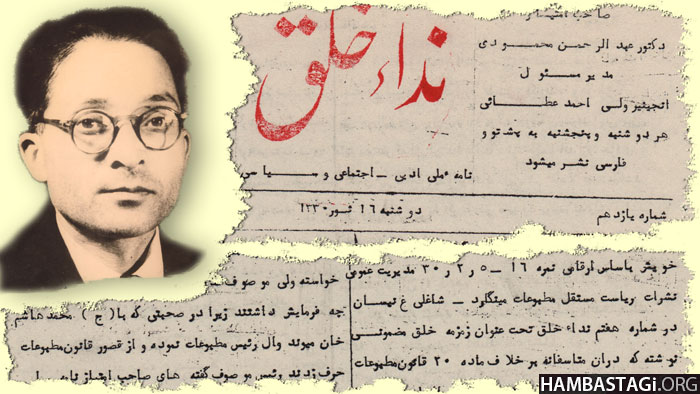 صاحب امتیاز
دکتور عبدالرحمن محمودی
مدیر مسئول
انجنیر ولی احمد عطائی
هر دوشنبه و پنجشنبه به پشتو و
فارسی نشر میشود
نداء خلق
نامه ملی ادبی - اجتماعی و سیاسی
شماره یازدهم
دوشنبه ۱۶ ثور ۱۳۳۰
خویش باساس ارقامی نمره ۱۶ – ۵ ر ۲ ر ۳۰ مدیریت عمومی
نشرات ریاست مستقل مطبوعات مینگارد – شاغلی غ نیسان
در شماره هفتم نداء خلق تحت عنوان زمزمه خلق مضمونی
نوشته که دران متاسفانه بر خلاف ماده ۲۰ قانون مطبوعات
خواسته ولی موصوف
چه فرمایش داشتند زیرا در صحبتی که با (ج) محمد هاشم
خان میوند وال رئیس مطبوعات نموده و از قصور قانون مطبوعات
حرف زدند رئیس موصوف گفته های صاحب امتیاز نامه را
HAMBASTAGI.ORG